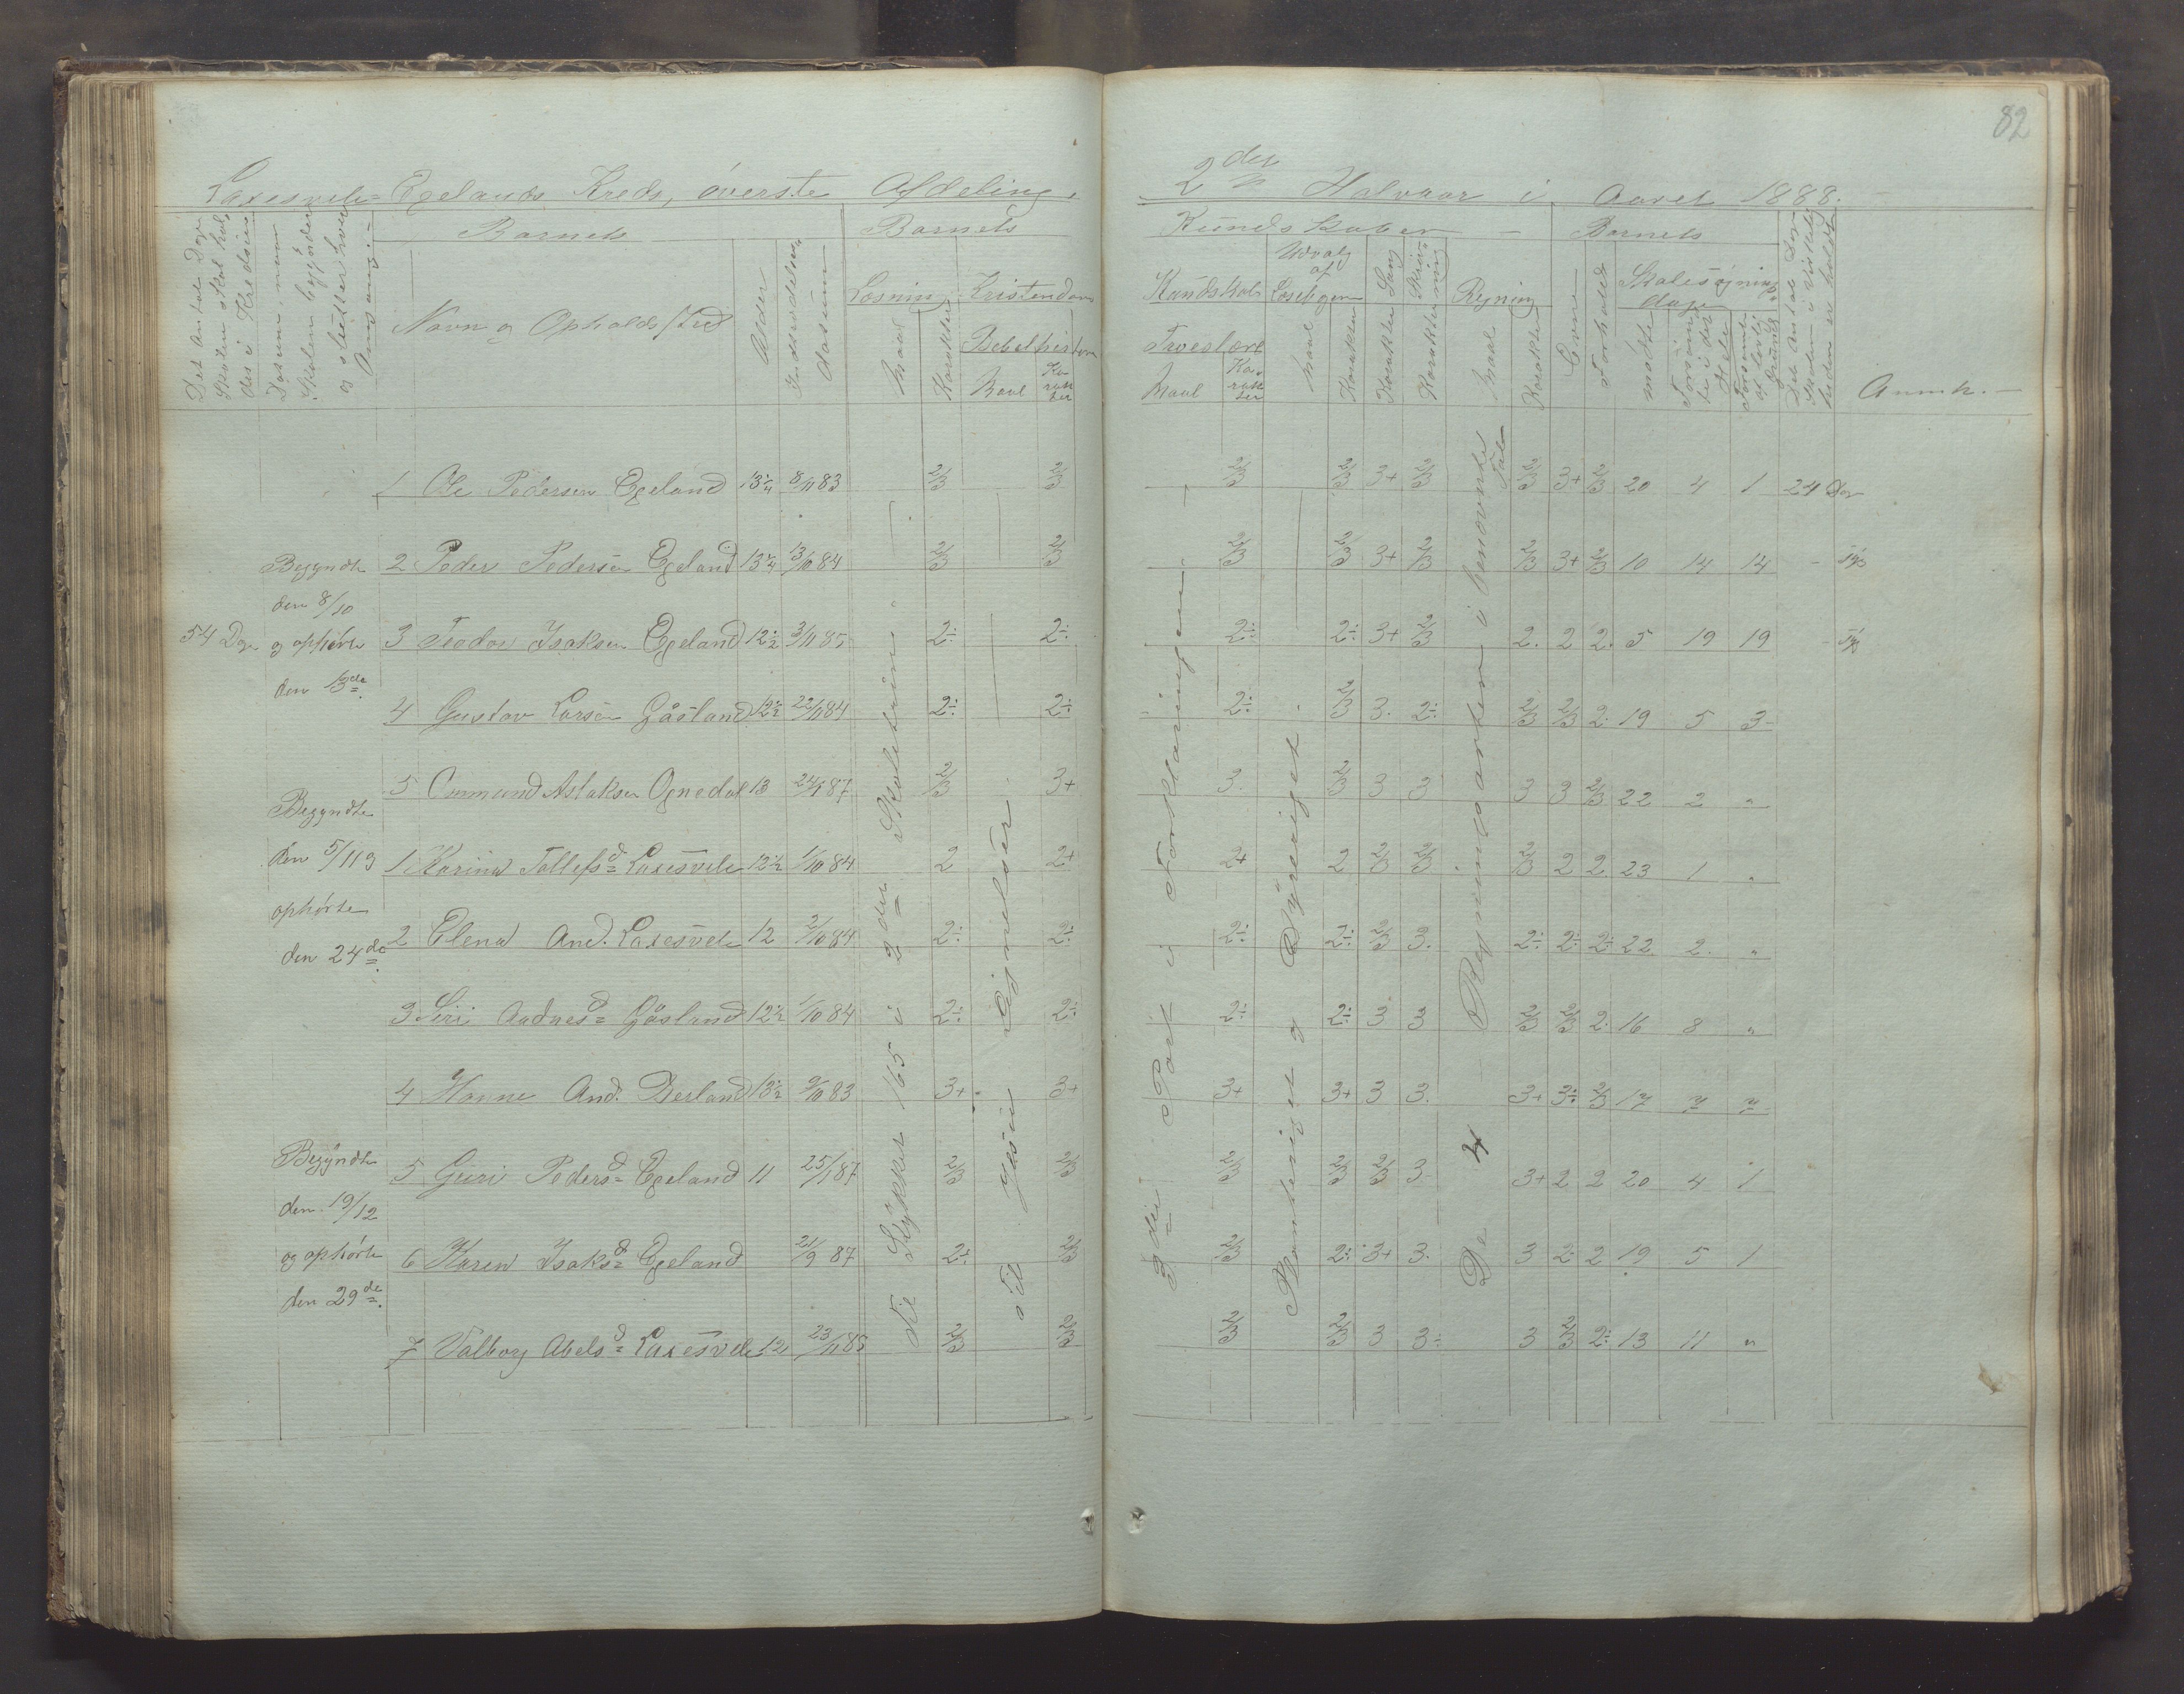 82
Laxesvele=Egelands Kreds, øverste Afdeling.
2det Halvaar i Aaret 1888.
Det Antal Dage Skolen skal holdes i Kredsen
Datum, naar Skolen begynder og slutter hver Omgang.
Barnets
Navn og Opholdssted
Alder
Indtrædelses Datum
Barnets
Kundskaber
Læsning
Maal
Karakter
Kristendoms
Kundskab
Bibelhistorie
Maal
Karakter
Troeslære
Maal
Karakter
Udvalg af Læsebogen
Maal
Karakter
Sang
Karakter
Skrivning
Karakter
Regning
Maal
Karakter
Barnets
Evne
Forhold
Skolesøgningsdage
mødte
Forsømte i det Hele
Forsømte af lovlig Grund
Det Antal Dage Skolen i Virkeligheden er holdt
Anmk.
1 Ole Pedersen Egeland 13¼ 8/11 83 2/3 2/3 2/3 2/3 3+ 2/3 2/3 3+ 2/3 20 4 1 24 Dage
Begyndte
2 Peder Pedersen Egeland 13¼ 13/10 84 2/3 2/3 2/3 2/3 3+ 2/3 2/3 3+ 2/3 10 14 14
den 8/10
54 Dage og ophørte 3 Teodor Isaksen Egeland 12½ 3/11 85 2÷ 2÷ 2÷ 2÷ 3+ 2/3 2. 2 2. 5 19 19
den 13de
4 Gustav Larsen Gåsland 12½ 22/11 84 2÷ 2÷ 2÷ 2/3 3. 2÷ 2/3 2/3 2. 19 5 3
5 Ommund Aslaksen Ognedal 13 24/1 87 2/3 3+ 3. 2/3 3 3 3 3 2/3 22 2 "
Begyndte
den 5/11 og 1 Karina Tollefsd= Laxesvele 12½ 1/10 84 2 2+ 2+ 2 2/3 2/3 2/3 2 2. 23 1 "
ophørte
den 24de 2 Elena And. Laxesvele 12 2/10 84 2÷ 2÷ 2÷ 2÷ 2/3 3. 2÷ 2÷ 2÷ 22 2. "
3 Siri Aadnesd= Gåsland 12½ 1/10 84 2÷ 2÷ 2÷ 2÷ 3 3 2/3 2/3 2. 16 8 "
4 Hanne And. Birland 13½ 9/10 83 3+ 3+ 3+ 3+ 3 3. 3+ 3÷ 2/3 17 7 7
Begyndte
5 Guri Pedersd= Egeland 11 25/1 87 2/3 2/3 2/3 2/3 2/3 3 3+ 2 2 20 4 1
den 19/12
og ophørte 6 Karen Isaksd= Egeland 21/9 87 2÷ 2/3 2/3 2÷ 3+ 3. 3 2 2 19 5 1
den 29de
7 Valborg Abelsd= Laxesvele 12 23/11 85 2/3 2/3 2/3 2/3 3 3÷ 3 2/3 2÷ 13 11 "
Til Stykket 165 i 2den Skoletrin
3die Part i Forklaringen
Planteriget og Dyreriget
De 4 Regningsarter i benævnte Tal